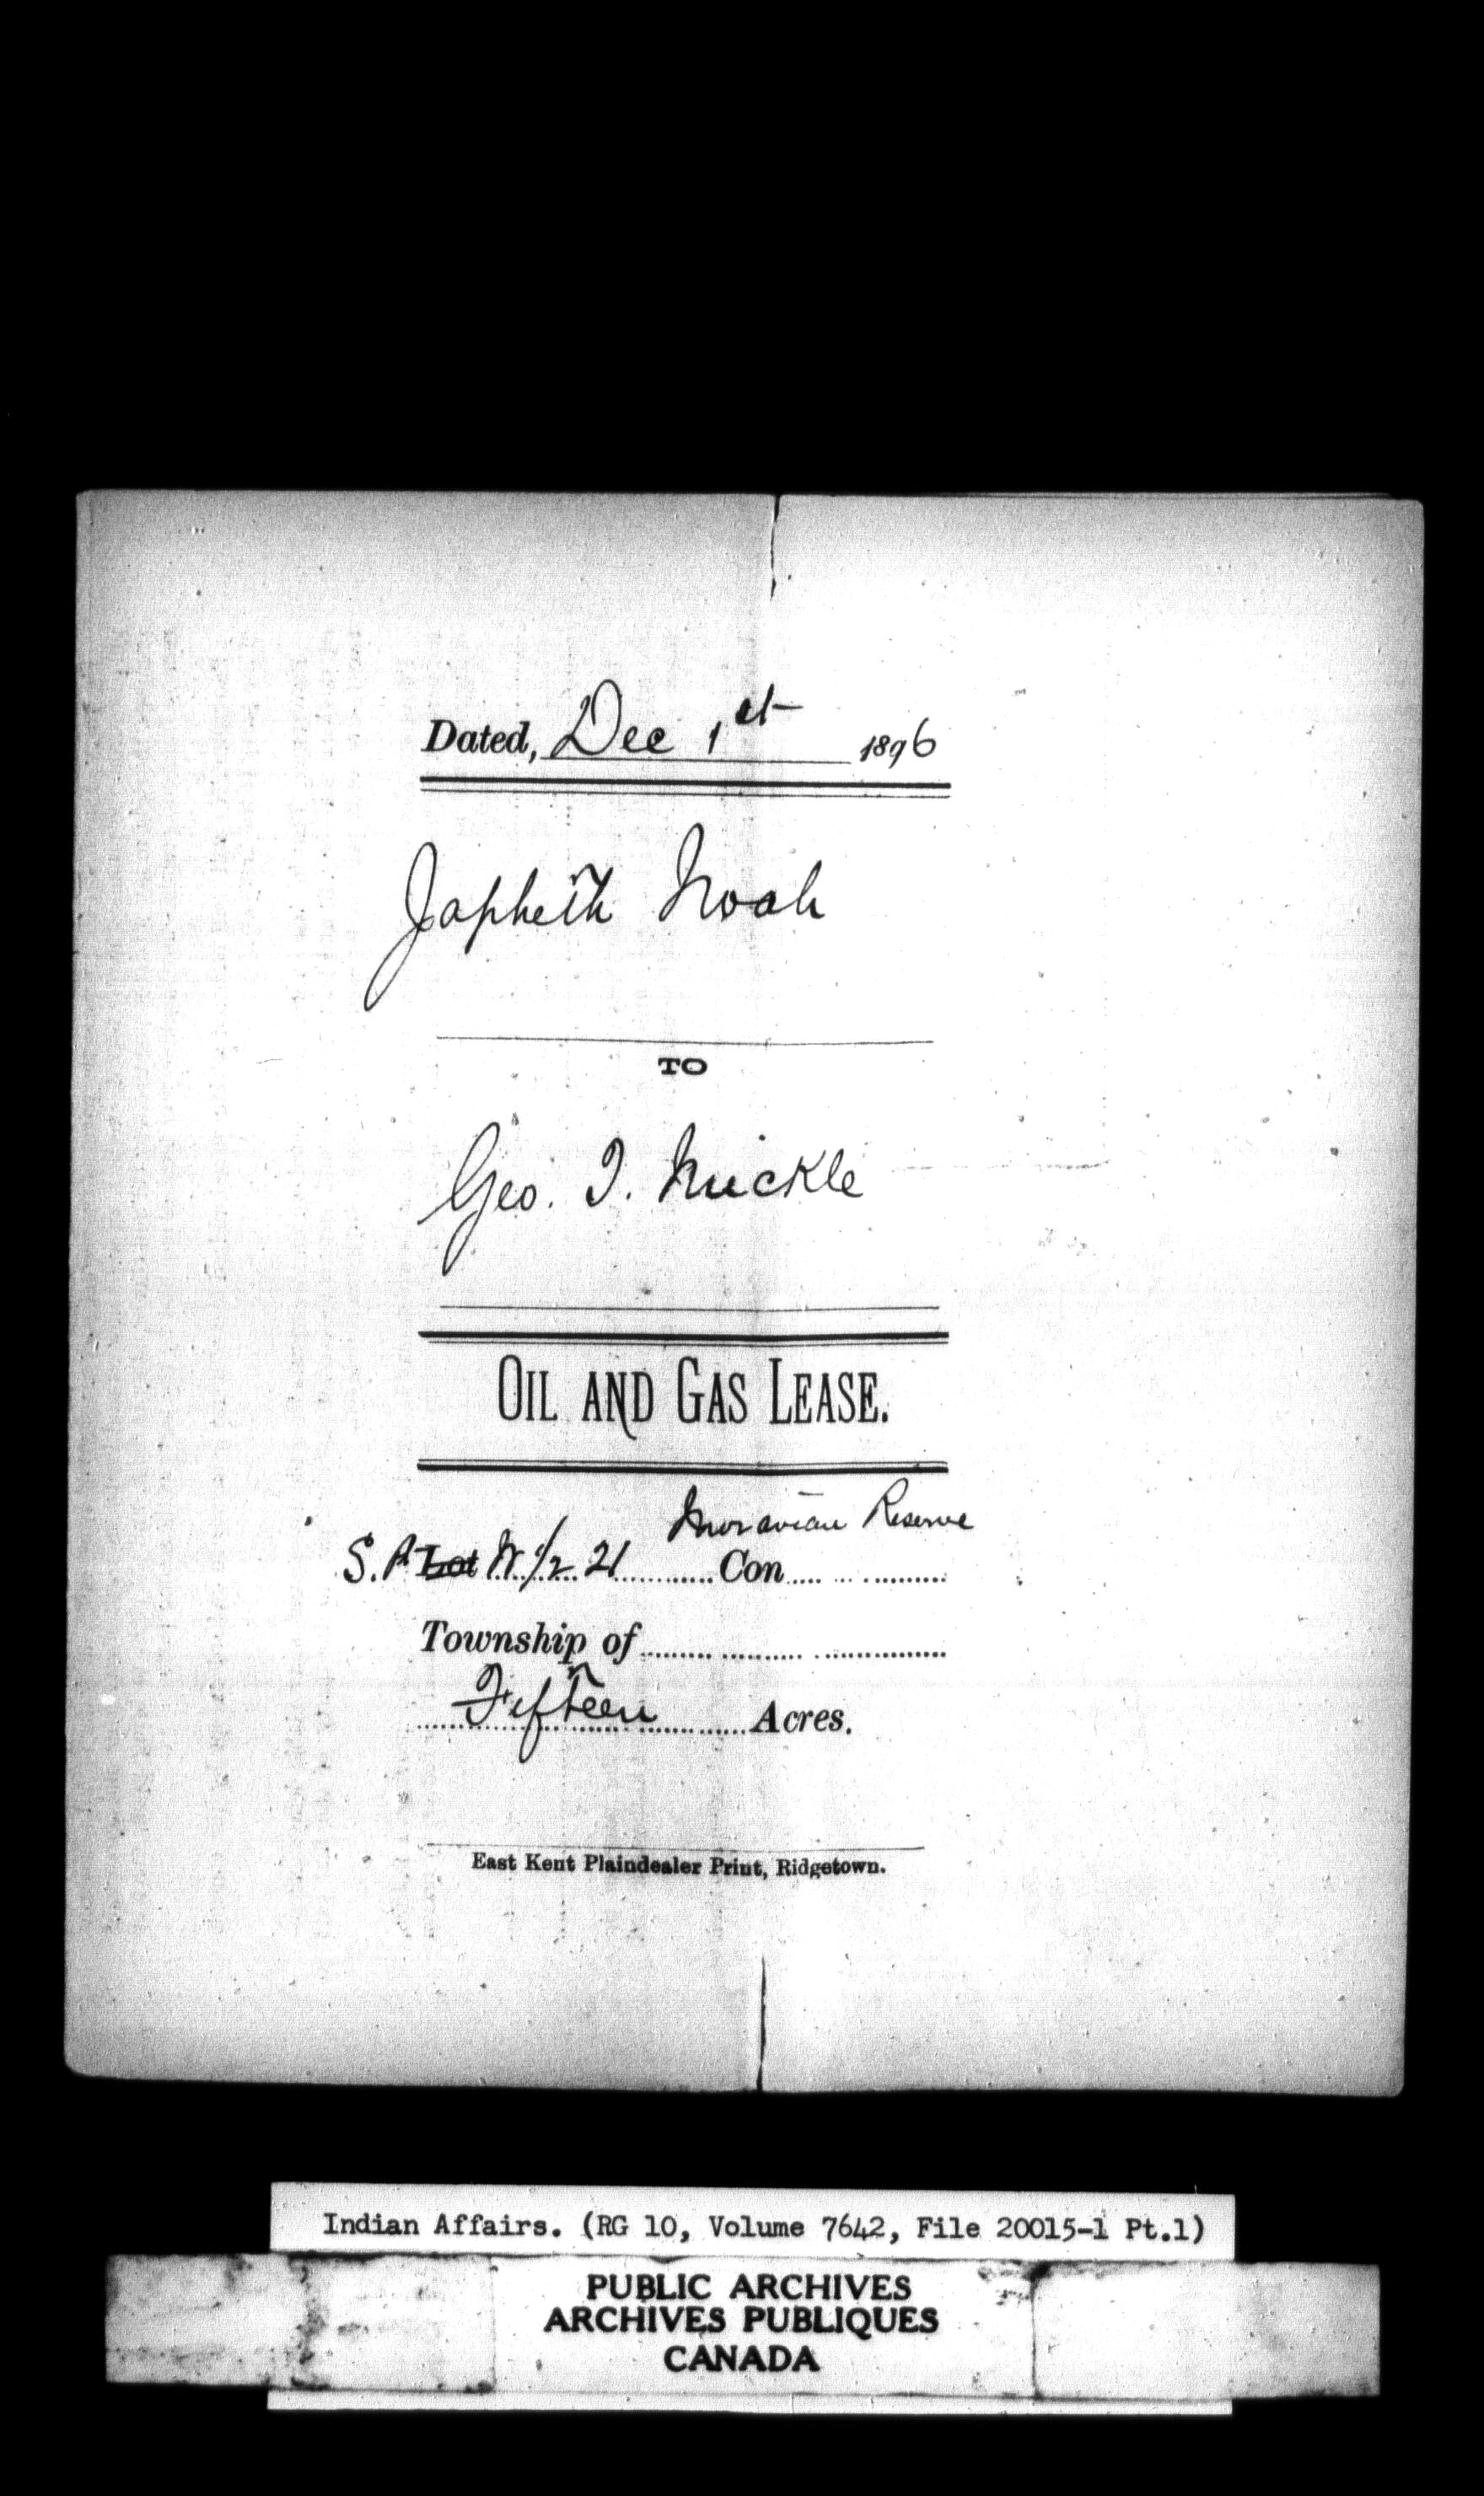 Dated, Dec 1st 1896
Japheth Noah
TO
Geo. T. Mickle
OIL AND GAS LEASE.
Moravian Reserve
S. P. Lot N 1/2 21 Con
Township of
Fifteen Acres.
East Kent Plaindealer Print, Ridgetown.
Indian Affairs. (RG 10, Volume 7642, File 20015-1 Pt.1)
PUBLIC ARCHIVES
ARCHIVES PUBLIQUES
CANADA